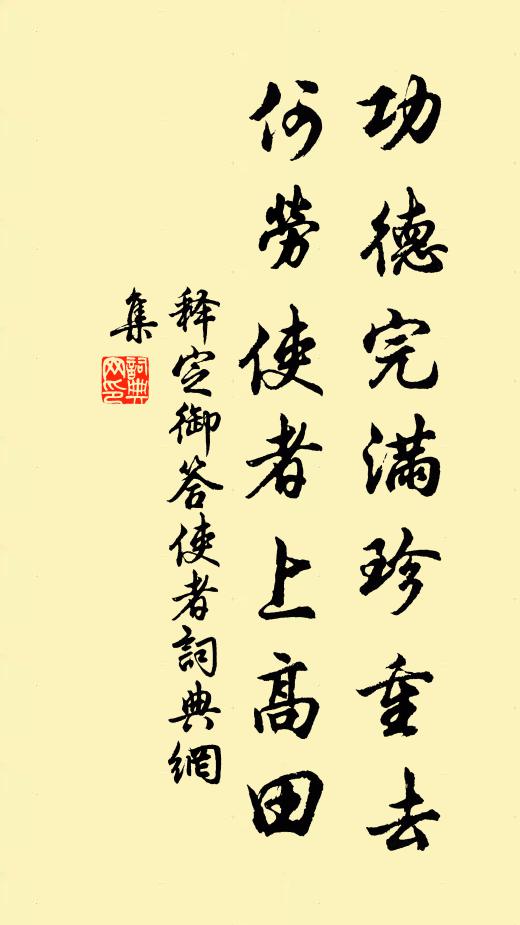 功德完滿珍重去
何勞使者上高田
释定御答使者詞典網
集
詞典网印